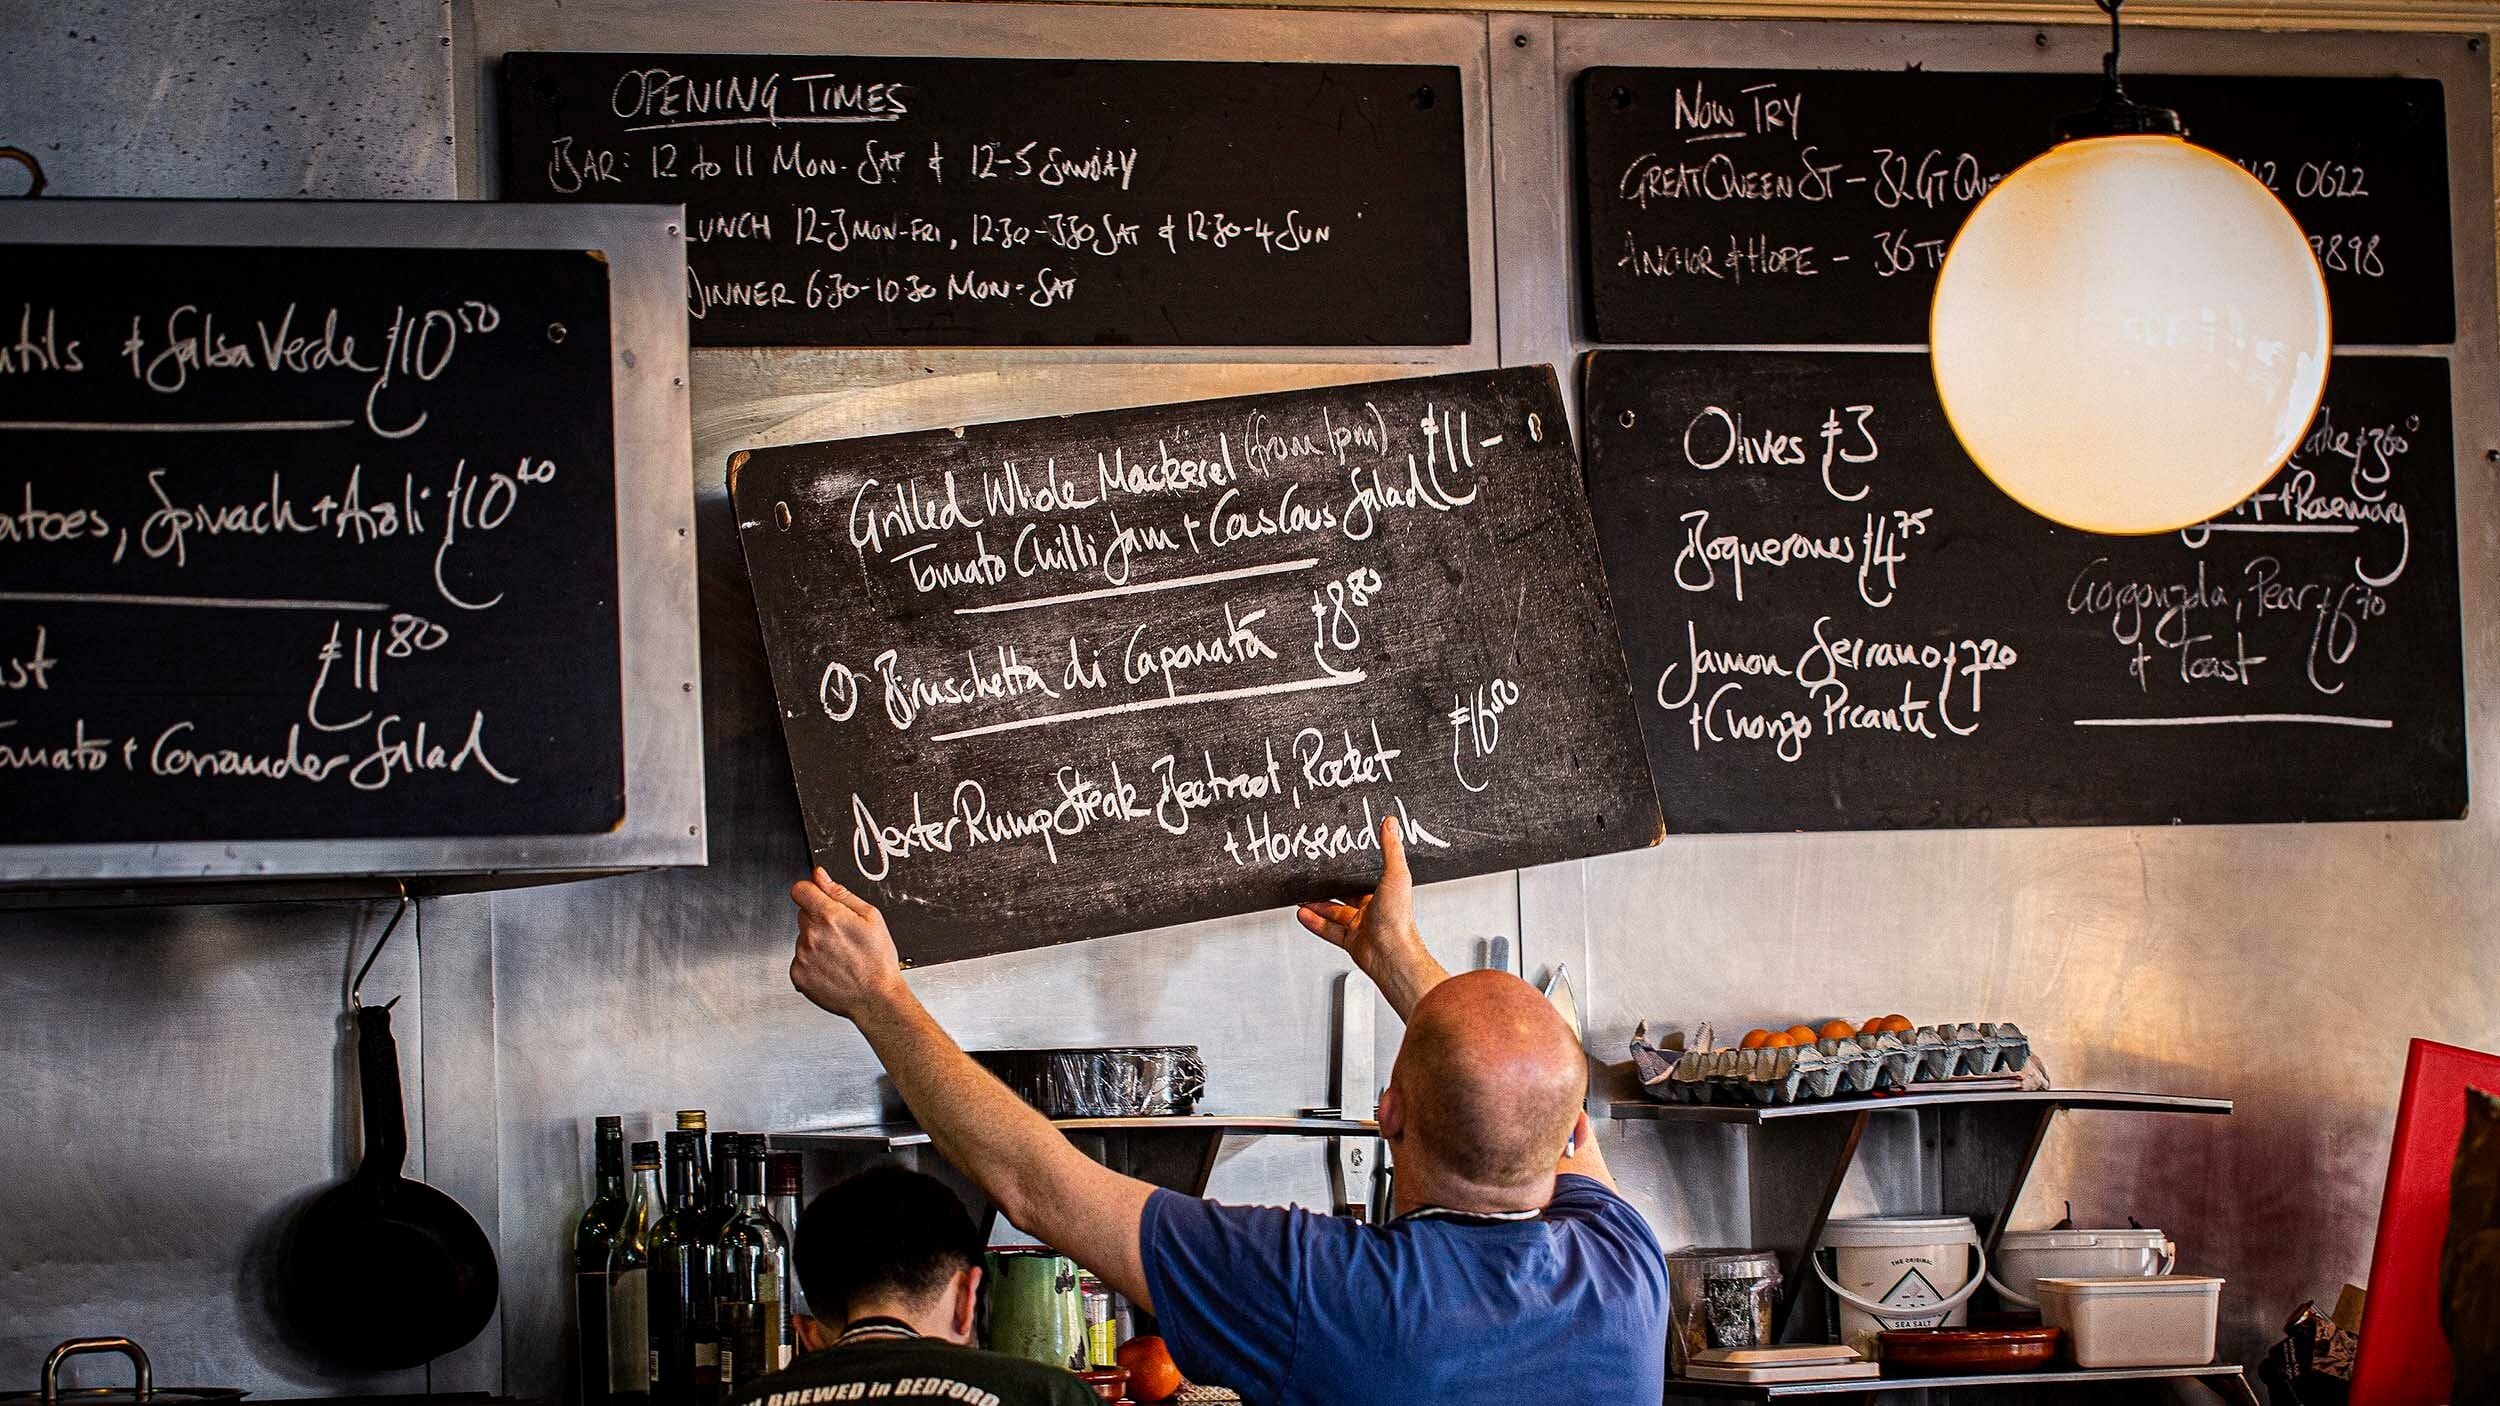 OPENING TIMES
BAR: 12 to 11 MON-SAT & 12-5 SUNDAY
LUNCH 12-3 MON-FRI, 12:30-3:30 SAT & 12:30-4 SUN
DINNER 6:30-10:30 MON-SAT
NOW TRY
GREAT QUEEN ST - 32 GT
0622
ANCHOR & HOPE - 36
9898
& Salsa Verde £10 50
Spinach + Aioli £10 40
£11 80
+ Coriander Salad
Grilled Whole Mackerel (from 1pm) £11-
Tomato Chilli Jam + Cous Cous Salad
Bruschetta di Caponata £8 80
Dexter Rump Steak Beetroot, Rocket £16 80
+ Horseradish
Olives £3
Boquerones £4 75
Jamon Serrano £7 20
+ Chorizo Picante
+ Rosemary
Gorgonzola, Pear £6 70
& Toast
THE ORIGINAL
SEA SALT
BREWED in BEDFORD